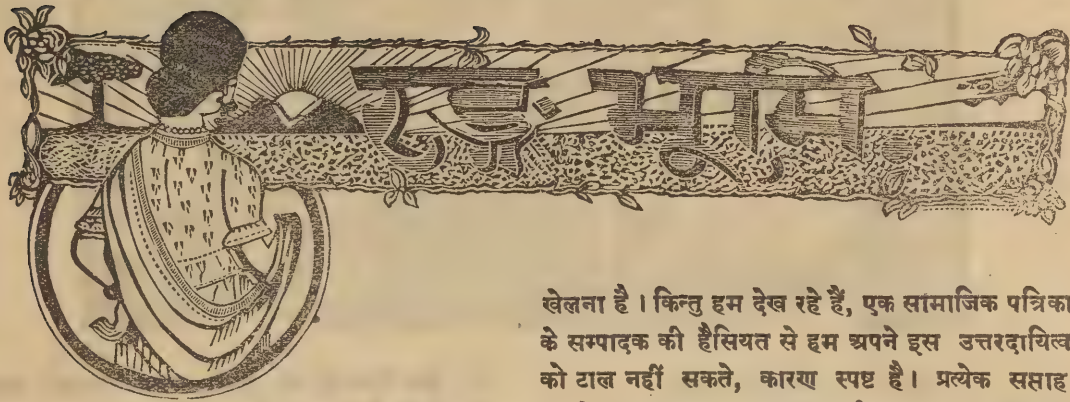 रङ्ग भूमि
खेलना है । किन्तु हम देख रहे हैं, एक सामाजिक पत्रिका
के सम्पादक की हैसियत से हम अपने इस उत्तरदायित्व
को टाल नहीं सकते, कारण स्पष्ट है। प्रत्येक सप्ताह